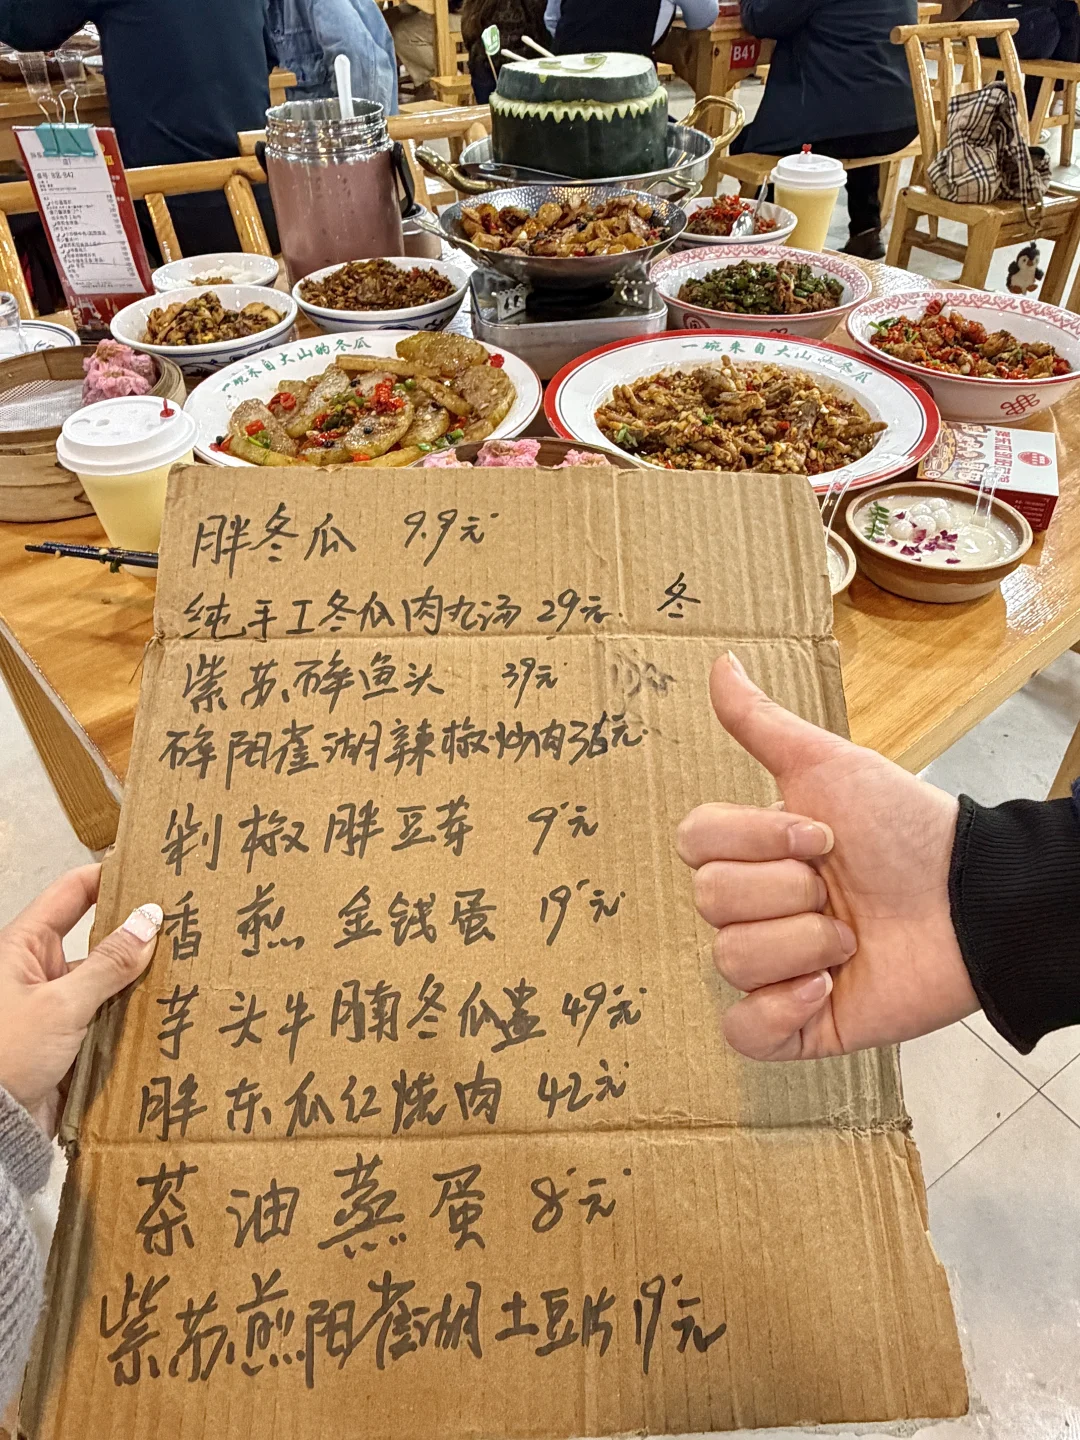 B41
一碗来自大山的冬瓜
一碗来自大山的冬瓜
胖冬瓜 9.9元
纯手工冬瓜肉丸汤 29元 冬
紫苏砗鱼头 39元
砗阳雀湖辣椒炒肉36元
剁椒胖豆芽 9元
香煎金钱蛋 19元
芋头牛腩冬瓜盅 49元
胖东瓜红烧肉 42元
茶油蒸蛋 8元
紫苏煎阳雀湖土豆片 19元